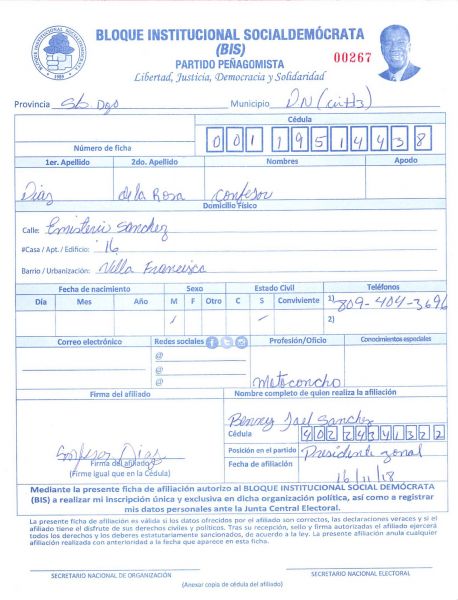 BLOQUE INSTITUCIONAL SOCIALDEMÓCRATA
(BIS)
PARTIDO PEÑAGOMISTA
00267
Libertad, Justicia, Democracia y Solidaridad
BLOQUE INSTITUCIONAL SOCIALDEMOCRATA
1989
Provincia Sto. Dgo Municipio DN (cir #3)
Cédula
Número de ficha 0 0 1 1 9 5 1 4 4 3 8
1er. Apellido 2do. Apellido Nombres Apodo
Diaz de la Rosa Confesor
Domicilio Físico
Calle: Emisterio Sanchez
#Casa / Apt. / Edificio: 16
Barrio / Urbanización: Villa Francisca
Fecha de nacimiento Sexo Estado Civil Teléfonos
Día Mes Año M F Otro C S Conviviente 1) 809-404-3696
2)
Correo electrónico Redes sociales Profesión/Oficio Conocimientos especiales
@
@
@ Motoconcho
Firma del afiliado Nombre completo de quien realiza la afiliación
Benny Jael Sanchez
Cédula 4 0 2 2 4 3 4 1 3 2 2
Confesor Diaz
Firma del afiliado Posición en el partido Presidente zonal
(Firme igual que en la Cédula) Fecha de afiliación 16/11/18
Mediante la presente ficha de afiliación autorizo al BLOQUE INSTITUCIONAL SOCIAL DEMÓCRATA
(BIS) a realizar mi inscripción única y exclusiva en dicha organización política, así como a registrar
mis datos personales ante la Junta Central Electoral.
La presente ficha de afiliación es válida si los datos ofrecidos por el afiliado son correctos, las declaraciones veraces y si el
afiliado tiene el disfrute de sus derechos civiles y políticos. Tras su recepción, sello y firma autorizadas el afiliado ejercerá
todos los derechos y los deberes estatutariamente sancionados, de acuerdo a la ley. La presente afiliación anula cualquier
afiliación realizada con anterioridad a la fecha que aparece en esta ficha.
SECRETARIO NACIONAL DE ORGANIZACIÓN SECRETARIO NACIONAL ELECTORAL
(Anexar copia de cédula del afiliado)